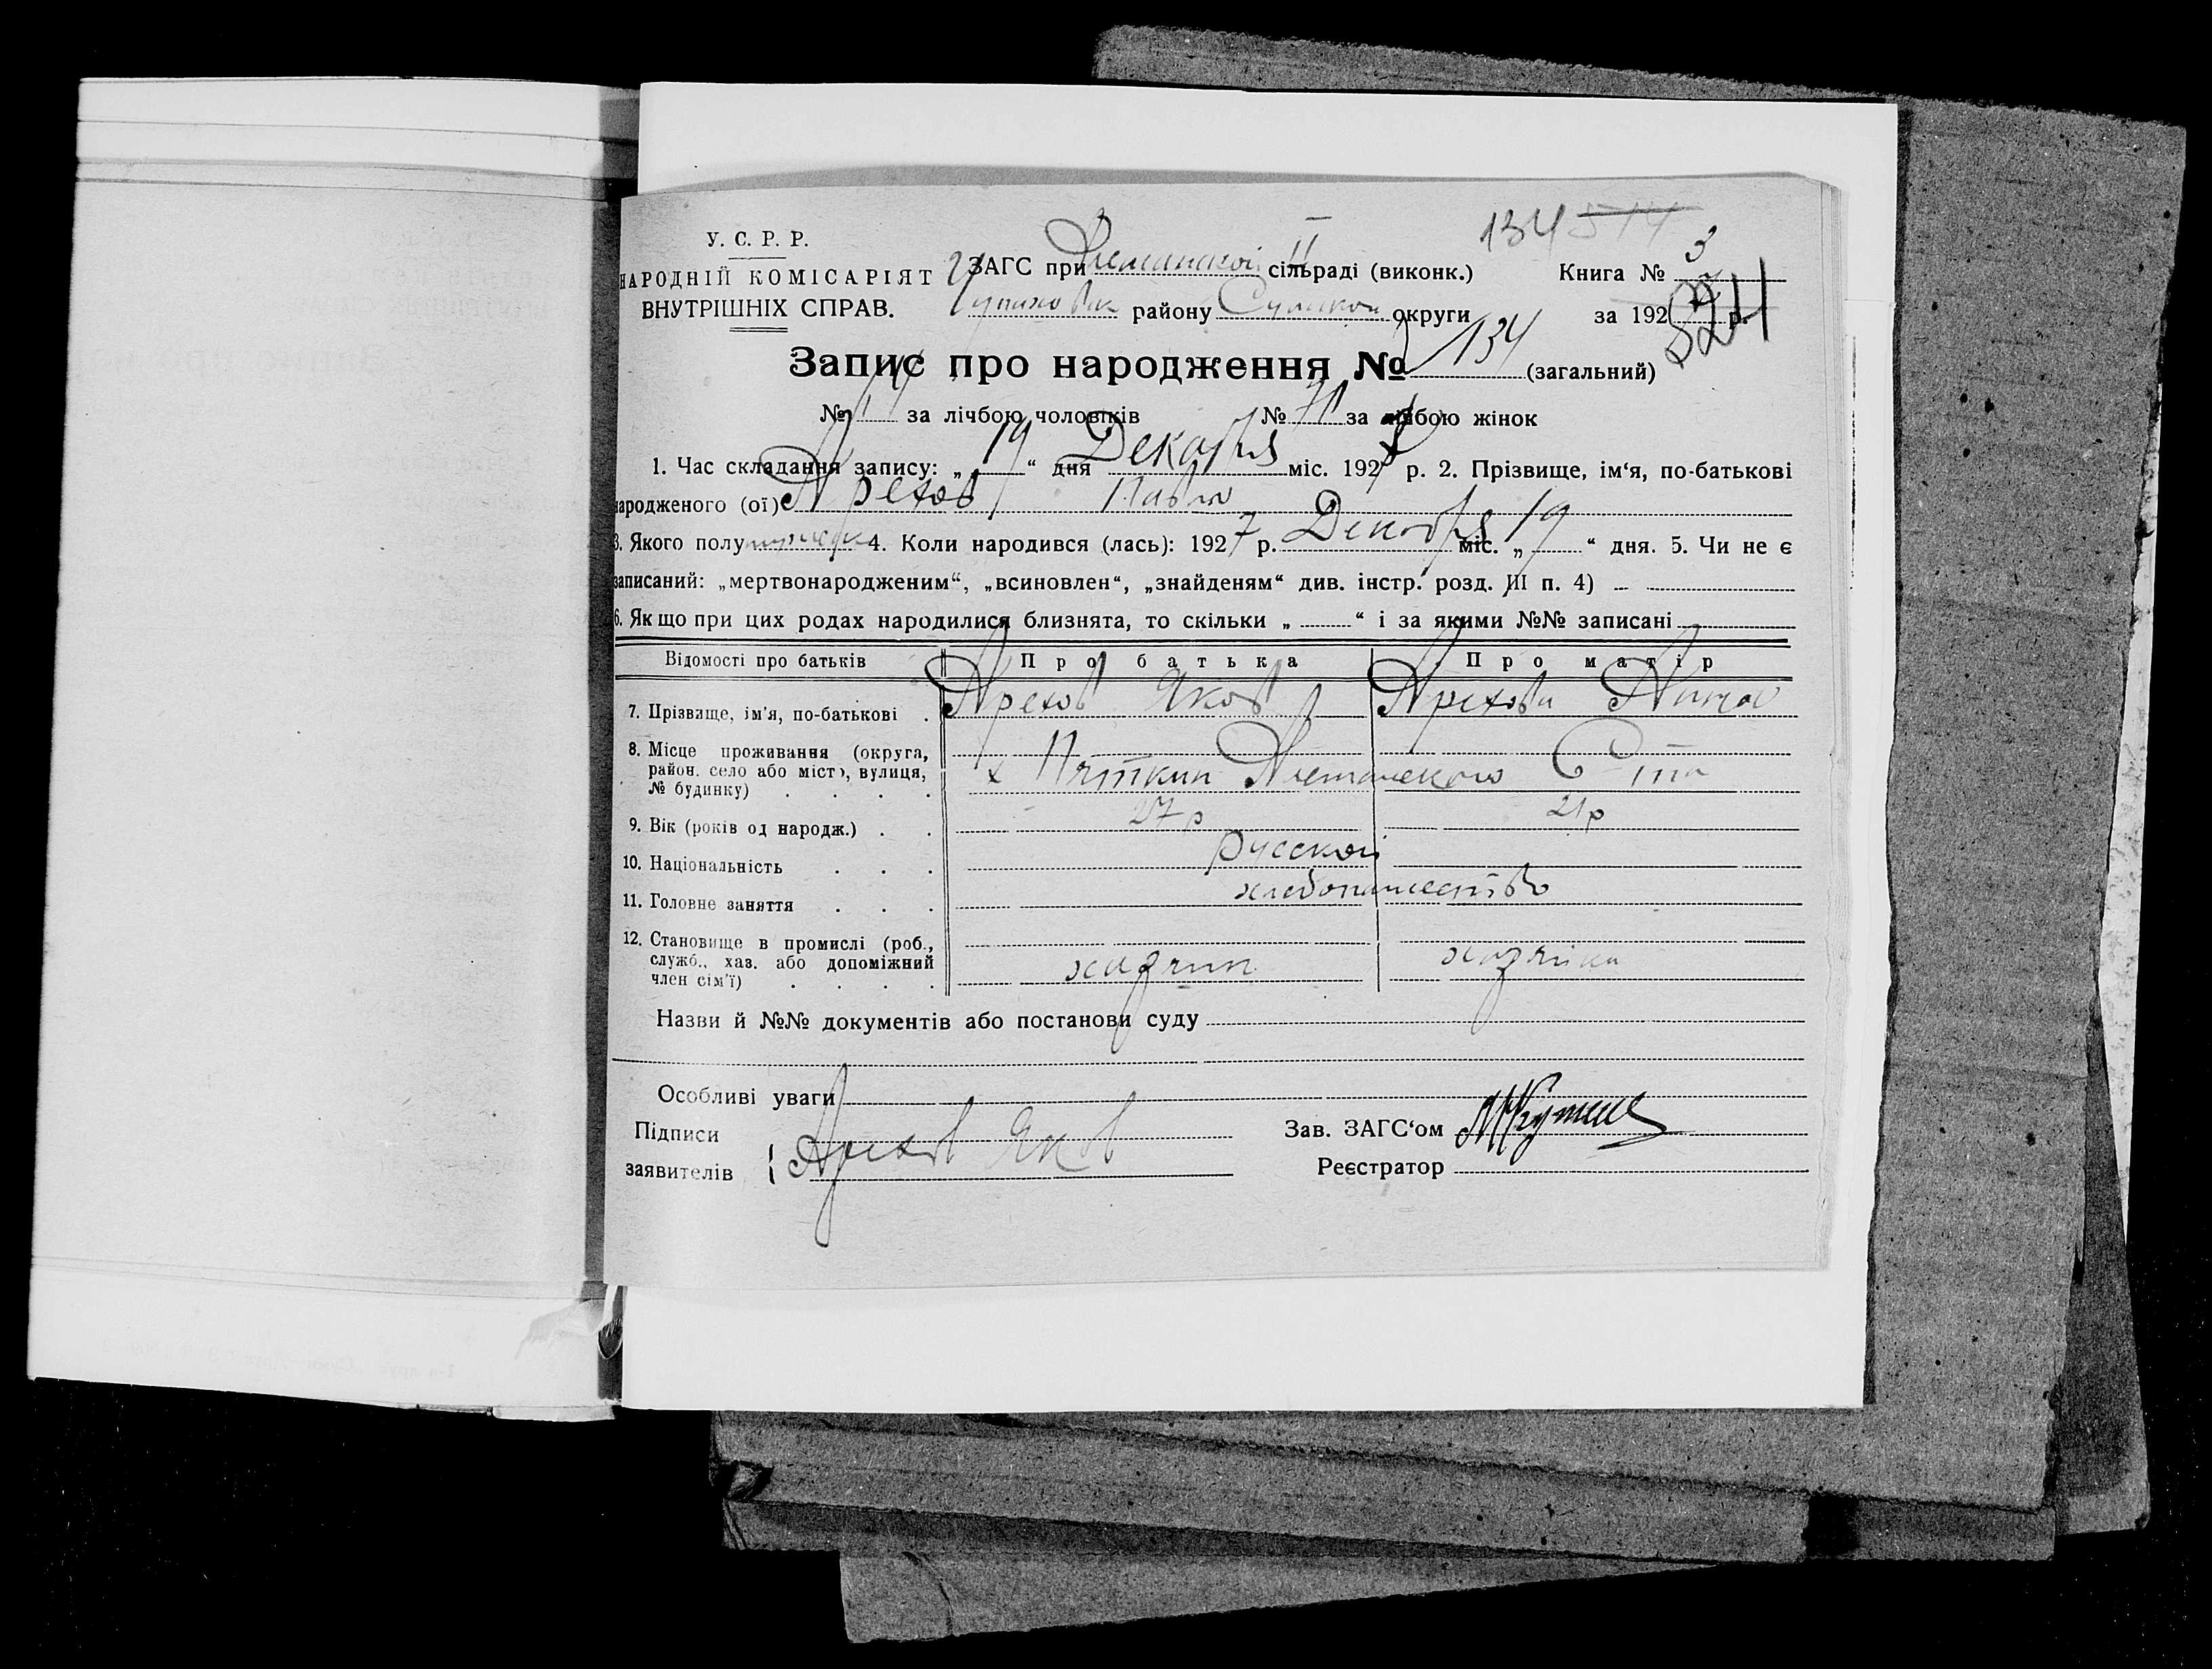 134 514
У. С. Р. Р.
НАРОДНІЙ КОМІСАРІЯТ
ВНУТРІШНІХ СПРАВ.
ЗАГС при II сільраді (виконк.)
району округи
Книга № 3
за 1927 р.
524
Запис про народження № 134 (загальний)
№ за лічбою чоловіків № 71 за лічбою жінок
1. Час складання запису: „ 19 “ дня Декабря міс. 1927 р. 2. Прізвище, ім‘я, по-батькові
народженого (ої) Арехов Павло
3. Якого полу 4. Коли народився (лась): 1927 р. Декабря міс. „ 19 “ дня. 5. Чи не є
записаний: „мертвонародженим“, „всиновлен“, „знайденям“ див. інстр. розд. III п. 4) –
6. Якщо при цих родах народилися близнята, то скільки „ “ і за якими №№ записані
Відомості про батьків Про батька Про матір
7. Прізвище, ім‘я, по-батькові . Арехов Яков Арехова
8. Місце проживання (округа,
район, село або місто), вулиця,
№ будинку) . . . . х Пяткин С-та
9. Вік (років од народж.) . . 27 р 21 р
10. Національність . . . русской
11. Головне заняття . . . хлебопашество
12. Становище в промислі (роб.,
служб., хаз. або допоміжний
член сім‘ї) . . . . хазяин хазяйка
Назви й №№ документів або постанови суду
Особливі уваги
Підписи
заявителів { Арехов Яков
Зав. ЗАГС‘ом
Реєстратор